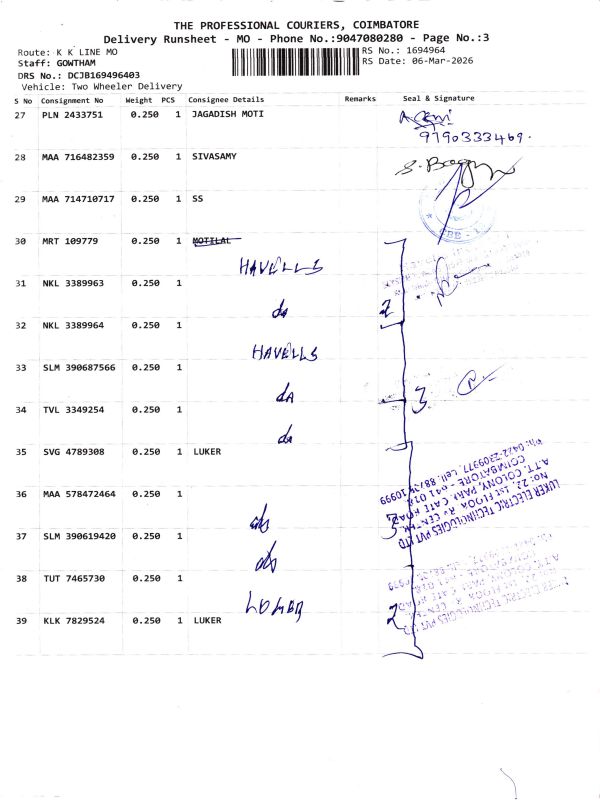 THE PROFESSIONAL COURIERS, COIMBATORE
Delivery Runsheet - MO - Phone No.:9047080280 - Page No.:3
Route: K K LINE MO RS No.: 1694964
Staff: GOWTHAM RS Date: 06-Mar-2026
DRS No.: DCJB169496403
Vehicle: Two Wheeler Delivery
S No Consignment No Weight PCS Consignee Details Remarks Seal & Signature
27 PLN 2433751 0.250 1 JAGADISH MOTI
9790333469.
28 MAA 716482359 0.250 1 SIVASAMY
29 MAA 714710717 0.250 1 SS
30 MRT 109779 0.250 1 MOTILAL
HAVELLS
31 NKL 3389963 0.250 1
do 2
32 NKL 3389964 0.250 1
HAVELLS
33 SLM 390687566 0.250 1
do 3
34 TVL 3349254 0.250 1
do
35 SVG 4789308 0.250 1 LUKER
36 MAA 578472464 0.250 1
LUKER ELECTRIC TECHNOLOGIES PVT LTD
No: 22, 1st FLOOR
A.T.T. COLONY, PARK GATE ROAD,
COIMBATORE - 641 018
Ph: 0422-2309977
do 3
37 SLM 390619420 0.250 1
do
38 TUT 7465730 0.250 1
LUKER
39 KLK 7829524 0.250 1 LUKER 2